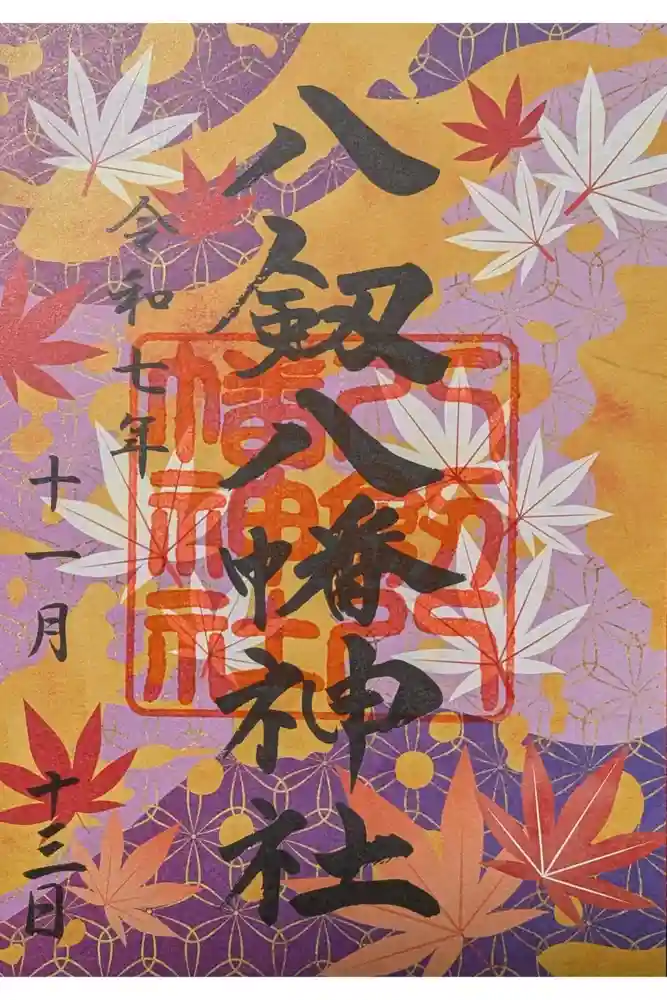 八剱八幡神社
令和七年
十一月
十三日
八剱八
幡神社